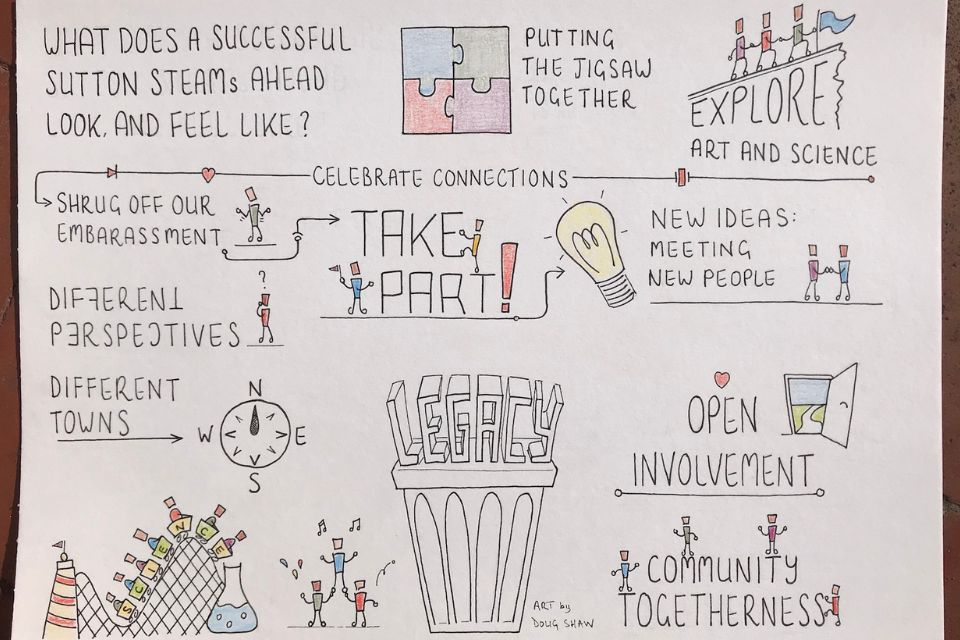 WHAT DOES A SUCCESSFUL
SUTTON STEAMs AHEAD
LOOK, AND FEEL LIKE?
PUTTING
THE JIGSAW
TOGETHER
EXPLORE
ART AND SCIENCE
CELEBRATE CONNECTIONS
SHRUG OFF OUR
EMBARASSMENT
TAKE
PART!
NEW IDEAS:
MEETING
NEW PEOPLE
?
DIFFERENT
PERSPECTIVES
DIFFERENT
TOWNS
N
W E
S
LEGACY
OPEN
INVOLVEMENT
SCIENCE
COMMUNITY
TOGETHERNESS
ART by
DOUG SHAW